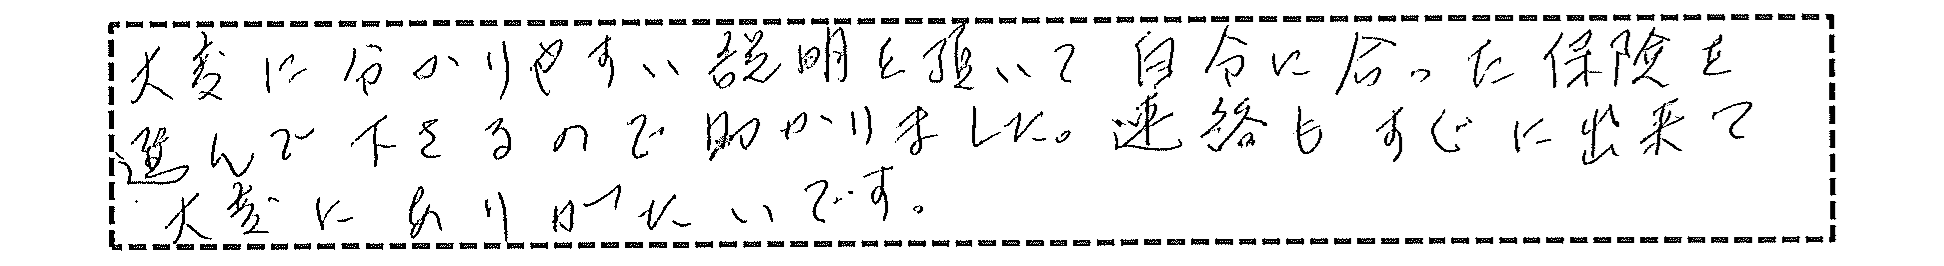 大変に分かりやすい説明を頂いて自分に合った保険を
選んで下さるので助かりました。連絡もすぐに出来て
大変にありがたいです。